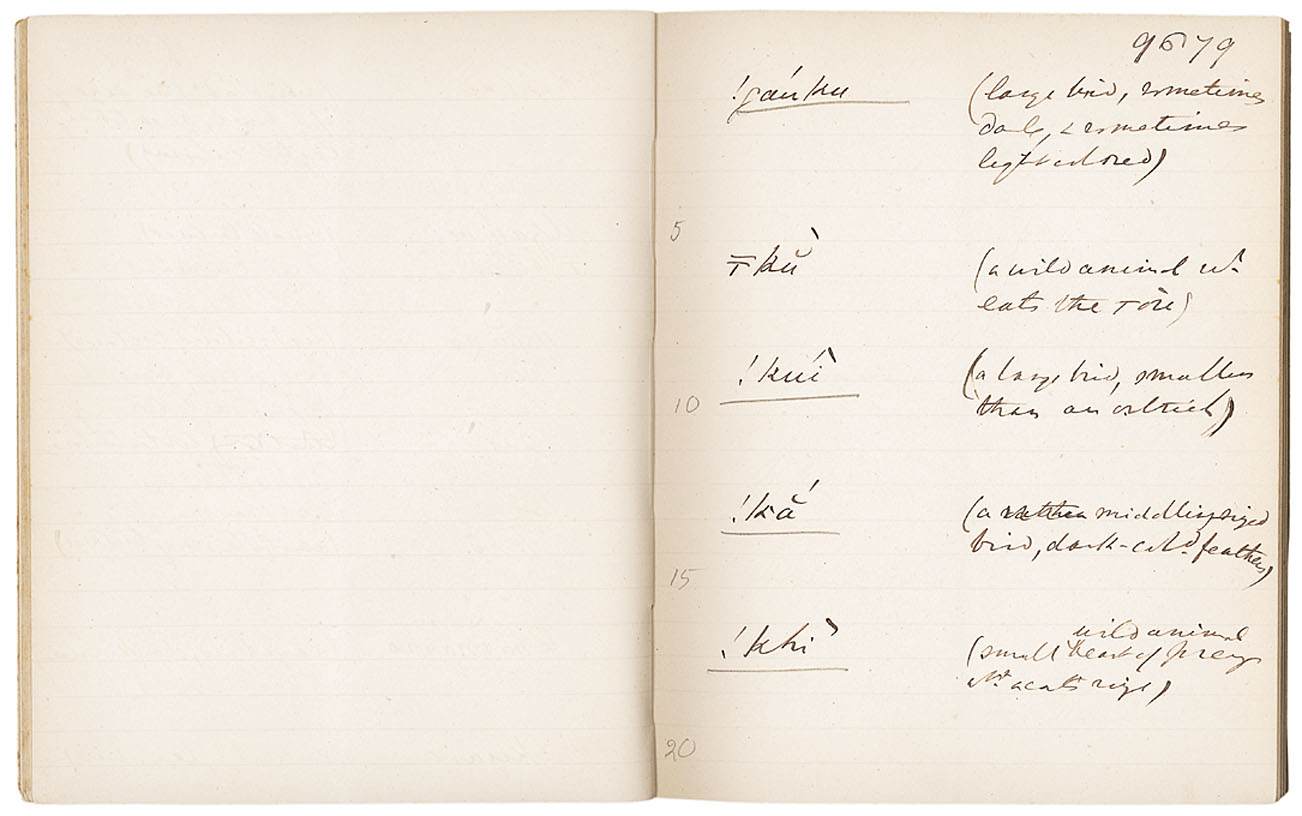 9679
!gáuku (large bird, sometimes
dark, & sometimes
light colored)
5
Ŧkŭˋ (a wild animal wh.
eats the
!kúíˋ (a large bird, smaller
10 than an ostrich)
!kắ (a rather middling sized
bird, dark-cold. feathers)
15
wild animal
!khiˋ (small beast of prey
abt. a cat's size)
20